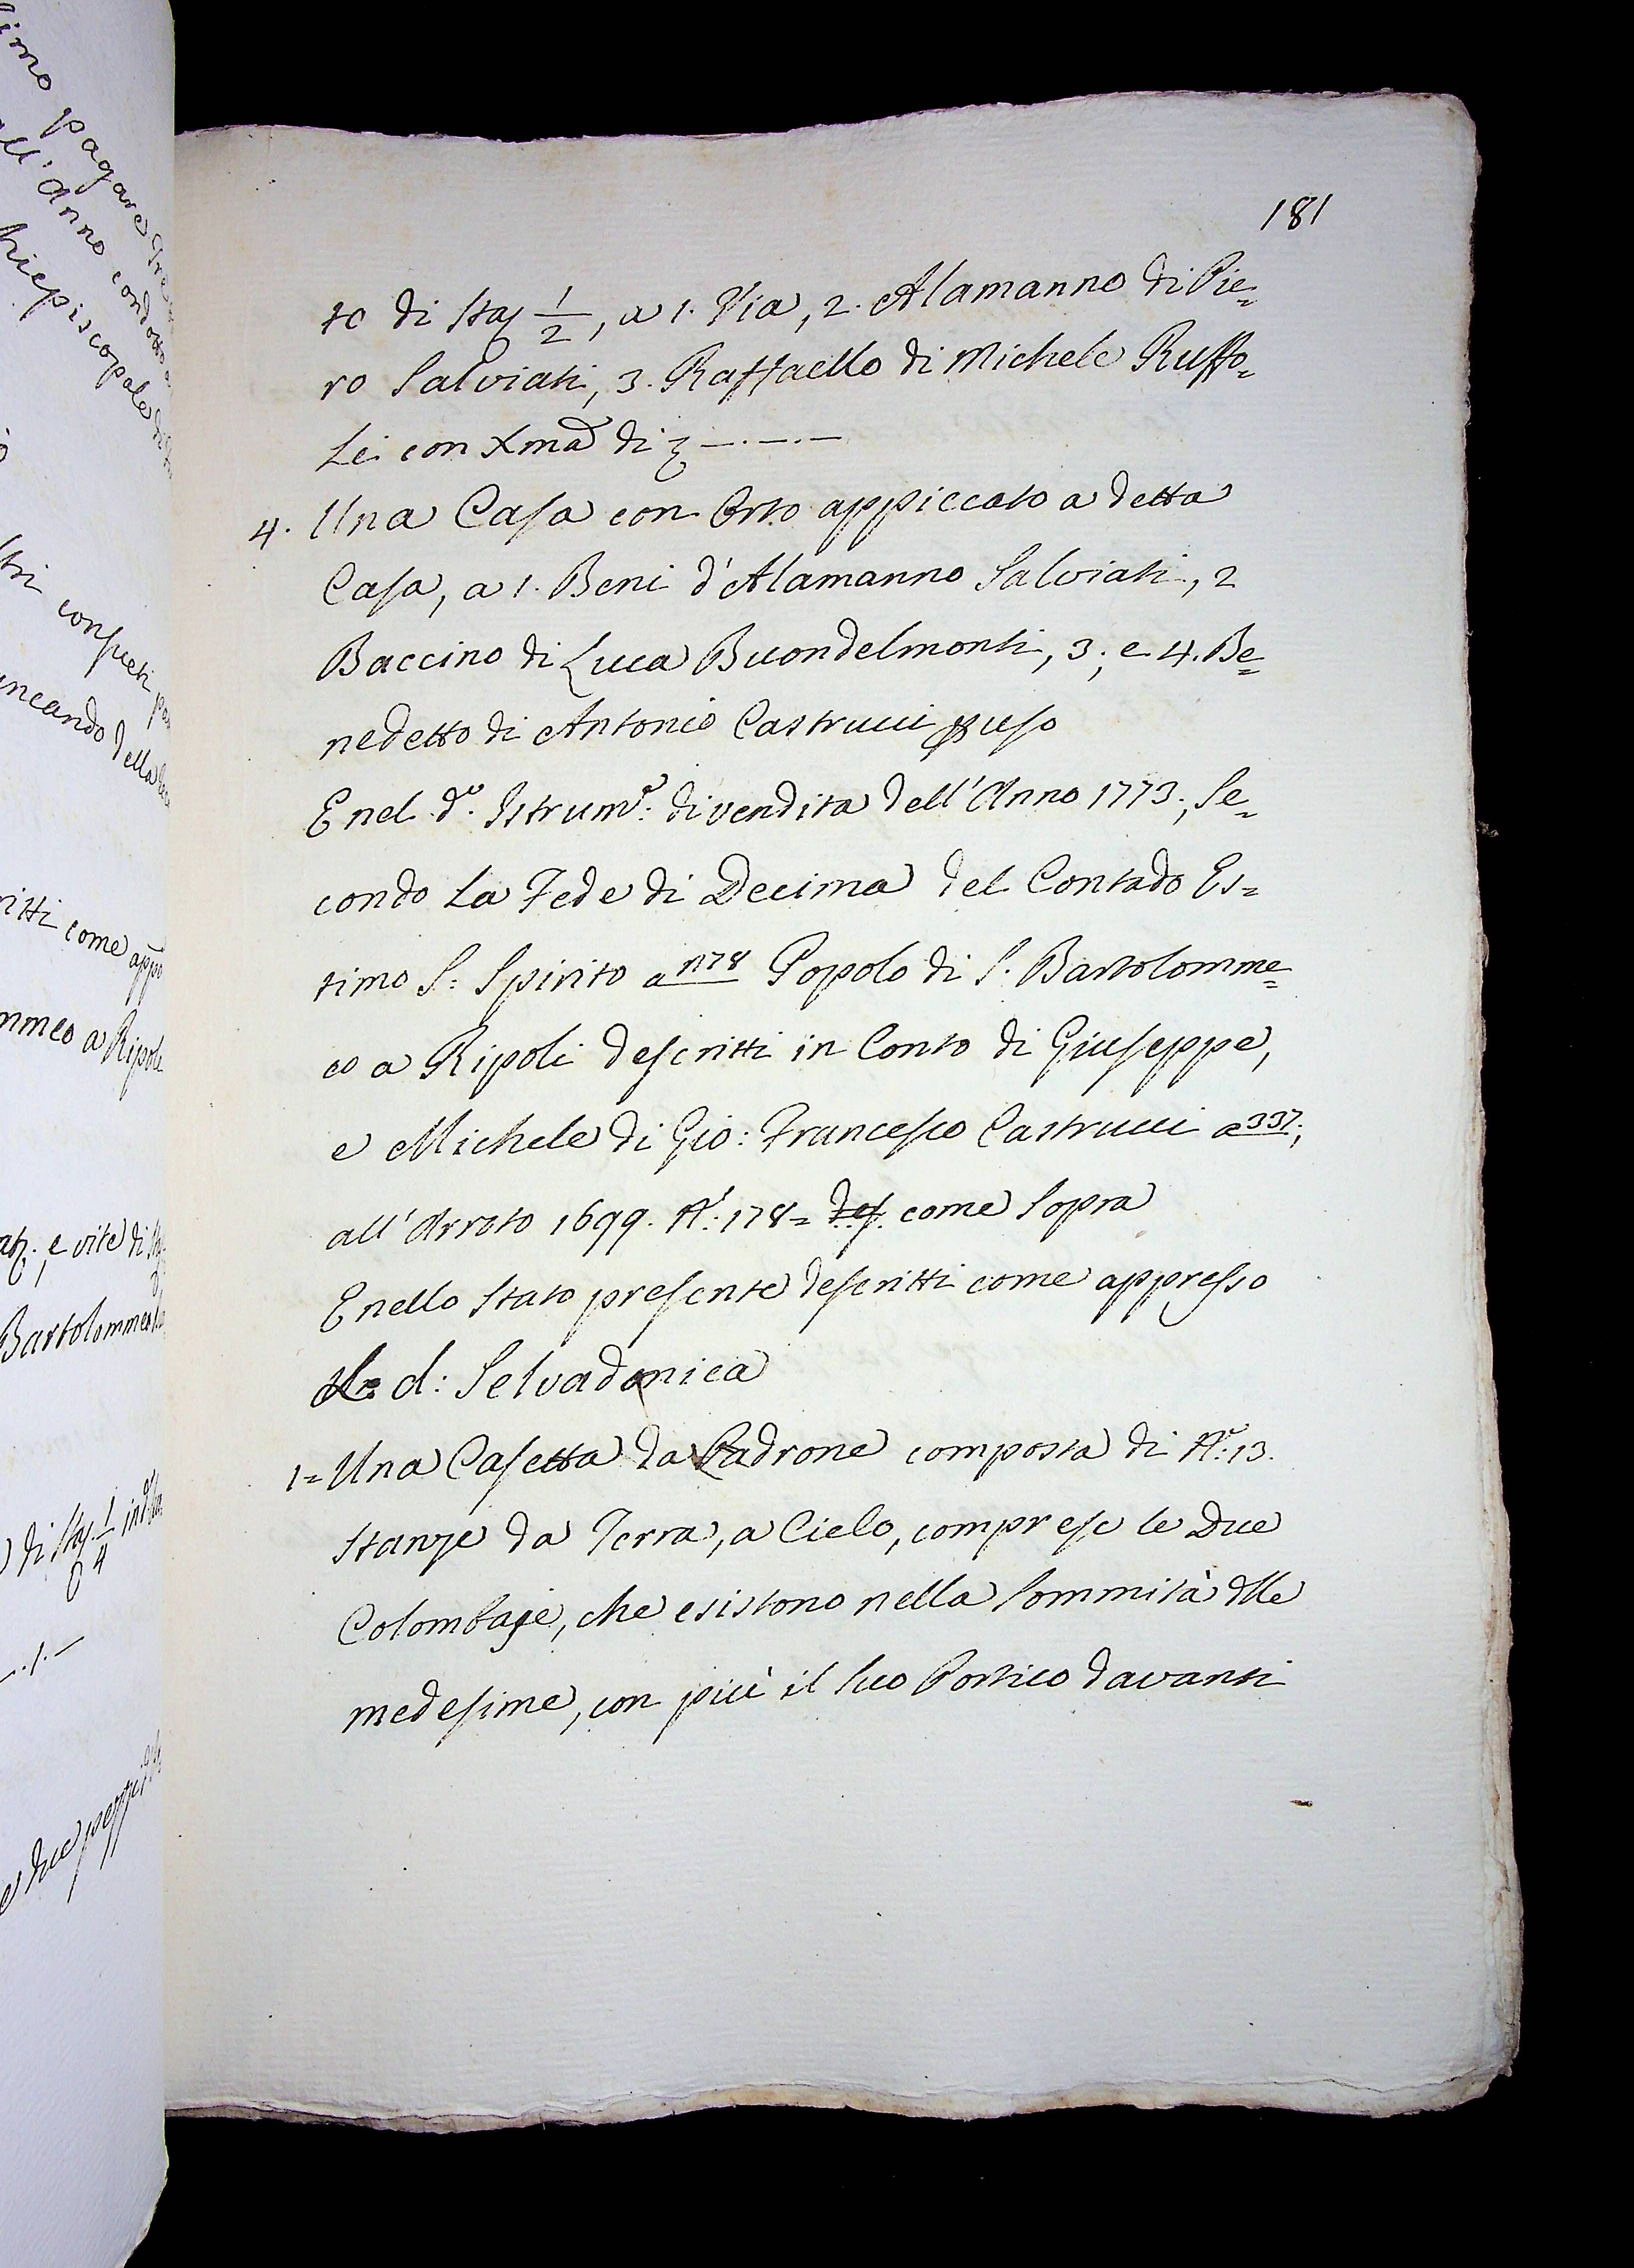 181
to di Staj 1/2, a 1. Via, 2. Alamanno di Pie=
ro Salviati, 3. Raffaello di Michele Ruffo=
li con Xma di ʒ —.—.—
4. Una Casa con Orto appiccato a detta
Casa, a 1. Beni d'Alamanno Salviati, 2
Baccino di Luca Buondelmonti, 3; e 4. Be=
nedetto di Antonio Castrucci p uso
E nel do. Istrumto: di vendita dell'Anno 1773; Se=
condo la Fede di Decima del Contado Es=
timo S: Spirito a n78 Popolo di S. Bartolomme=
o a Ripoli descritti in Conto di Giuseppe,
e Michele di Gio: Francesco Castrucci a 337;
all'Arroto 1699. No: 178= come Sopra
E nello Stato presente descritti come appresso
d: Selvadonica
1= Una Casetta da Padrone composta di No: 13.
Stanze da Terra, a Cielo, comprese le Due
Colombaje, che esistono nella Sommità dlle
medesime, con più il suo Portico davanti
pagare
all'Anno condotto
consueti
della
ritti come appo
mmeo a Ripoli
e vite di
Bartolommeo
di Staj. 1/4
—./.—
due pezzi